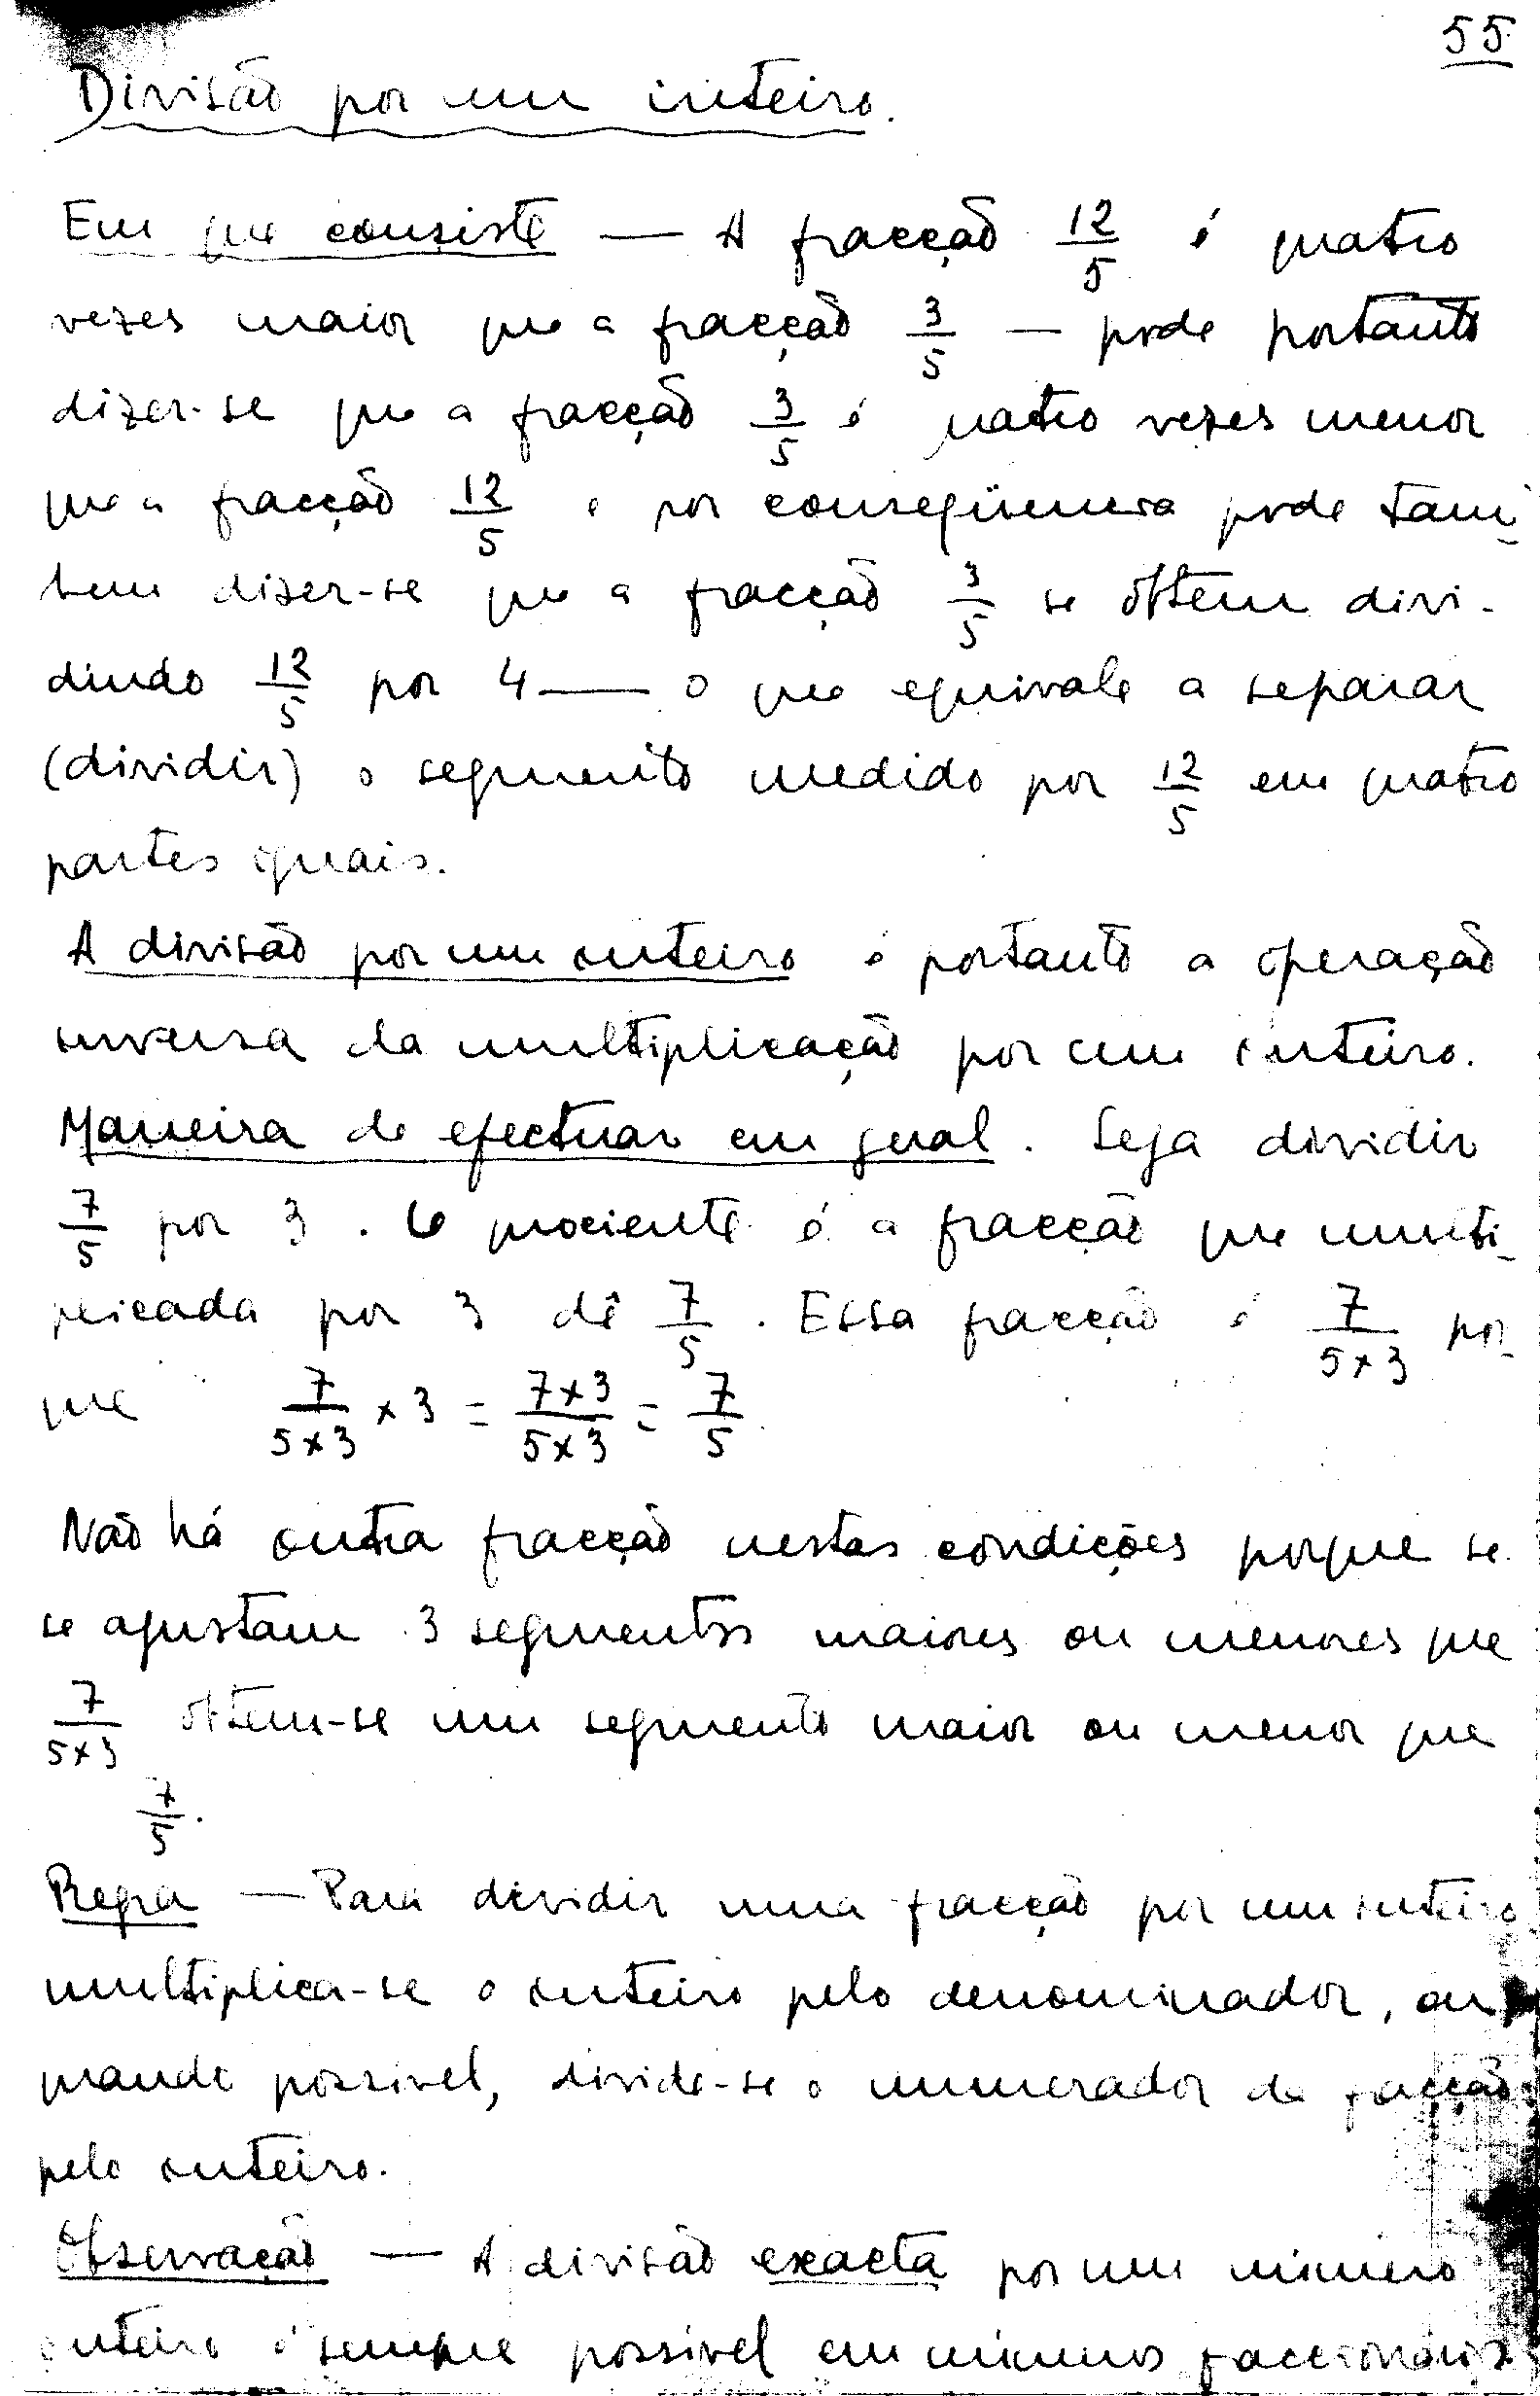 55
Divisão por um inteiro.
Em que consiste — A fracção 12/5 é quatro
vezes maior que a fracção 3/5 — pode portanto
dizer-se que a fracção 3/5 é quatro vezes menor
que a fracção 12/5 e por conseqüencia pode tam-
bem dizer-se que a fracção 3/5 se obtem divi-
dindo 12/5 por 4 — o que equivale a separar
(dividir) o segmento medido por 12/5 em quatro
partes iguais.
A divisão por um inteiro é portanto a operação
inversa da multiplicação por um inteiro.
Maneira de efectuar em geral. Seja dividir
7/5 por 3. O quociente é a fracção que multi-
plicada por 3 dê 7/5. Essa fracção é 7/(5×3) por-
que 7/(5×3) × 3 = (7×3)/(5×3) = 7/5
Não há outra fracção nestas condições porque se
se ajustam 3 segmentos maiores ou menores que
7/(5×3) obtem-se um segmento maior ou menor que
7/5.
Regra — Para dividir uma fracção por um inteiro
multiplica-se o inteiro pelo denominador, ou
quando possivel, divide-se o numerador da fracção
pelo inteiro.
Observação — A divisão exacta por um número
inteiro é sempre possível em números faccionários